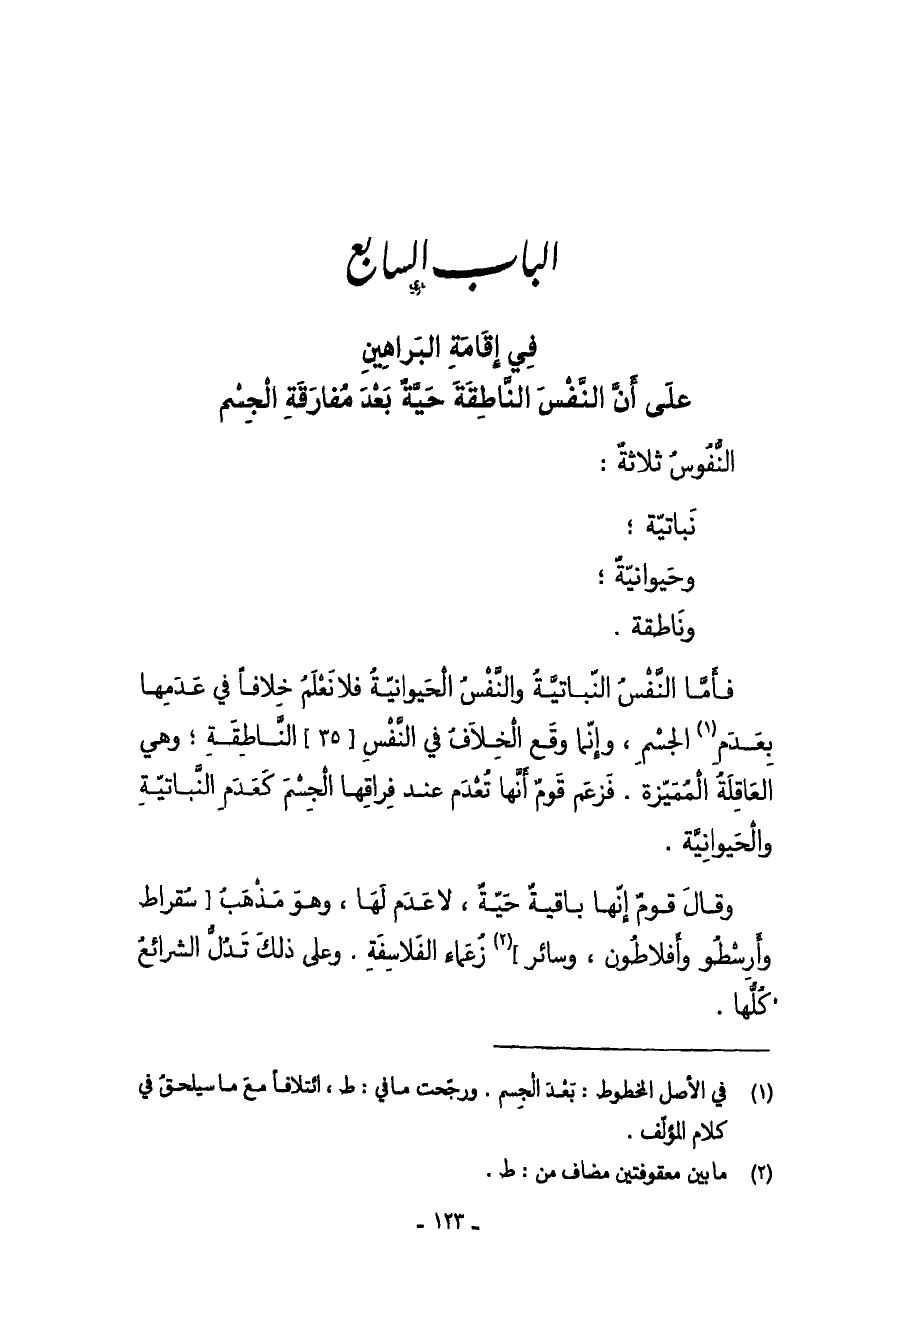 الباب السابع
في إِقَامَةِ البَراهِينِ
علَى أَنَّ النَّفْسَ النَّاطِقَةَ حَيَّةٌ بَعْدَ مُفارَقَةِ الْجِسْم
النُّفُوسُ ثلاثةٌ :
نَباتيّة ؛
وحَيوانيّةٌ ؛
ونَاطقة .
فأَمَّا النَّفْسُ النّباتيَّةُ والنَّفْسُ الْحَيوانيّةُ فلا نَعْلَمُ خِلافاً في عَدَمِها
بِعَدَمِ(١) الجْسْمِ ، وإِنّما وقَع الْخِلاَفُ في النَّفْسِ [ ٣٥ ] النَّاطِقَةِ ؛ وهي
العَاقِلَةُ الْمُمَيّزة . فَزعَم قَومٌ أَنَّها تُعْدَم عند فِراقِها الْجِسْمَ كَعَدَمِ النَّباتيّةِ
والْحَيوانِيَّة .
وقالَ قومٌ إِنّها باقيةٌ حَيّةٌ ، لا عَدَم لَهَا ، وهوَ مَذْهَبُ [ سُقراط
وأَرِسْطُو وأَفلاطُون ، وسائر ](٢) زُعَماء الفَلاسِفَةِ . وعلى ذلكَ تَدُلُّ الشرائعُ
كُلُّها .
(١) في الأصل المخطوط : بَعْدَ الْجِسم . ورجّحت ما في : ط ، ائتلافاً معَ ما سيلحقُ في
كلام المؤلّف .
(٢) ما بين معقوفتين مضاف من : ط .
ـ ١٢٣ ـ